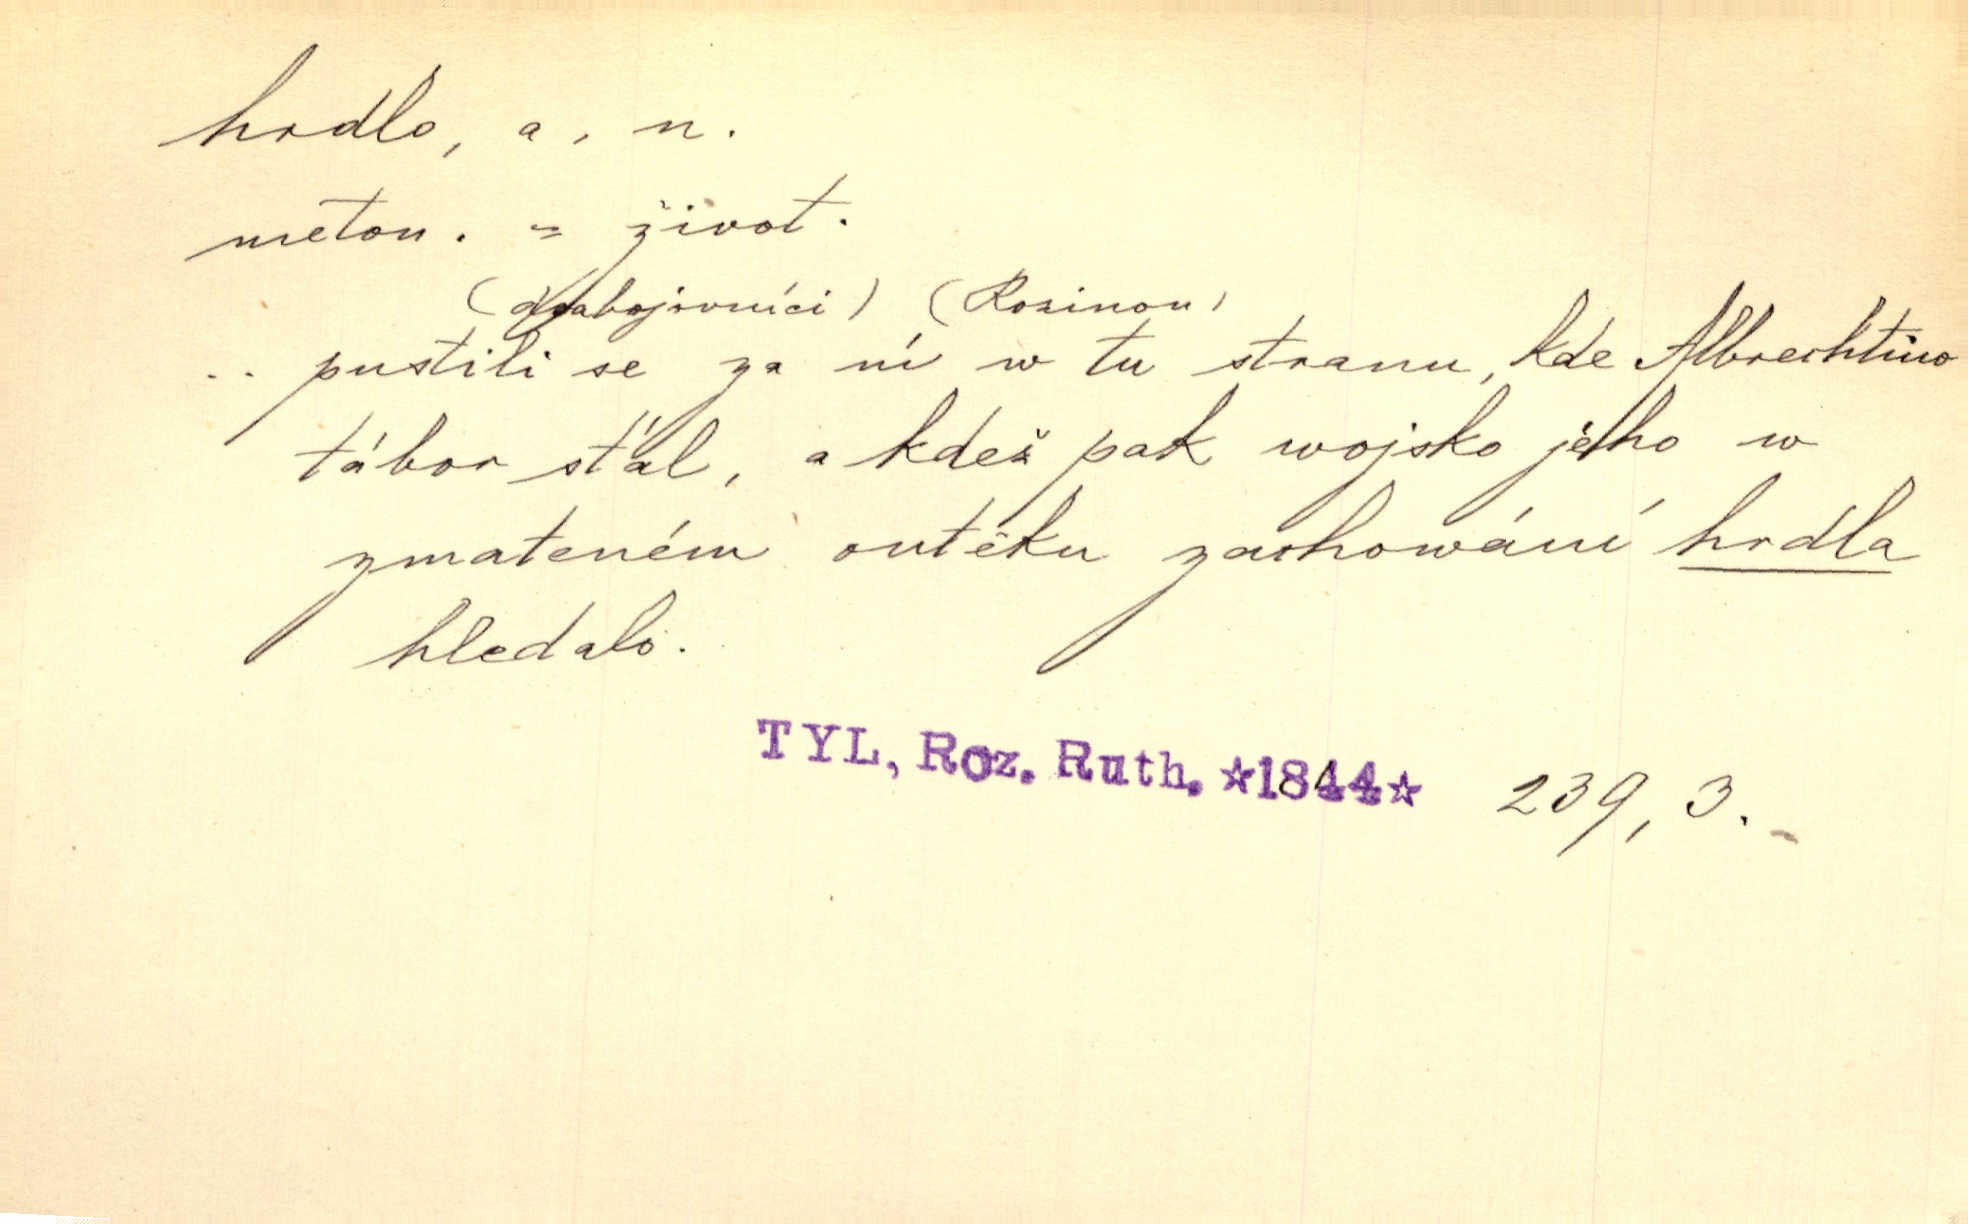 hrdlo, a, n.
meton. = život.
(dva bojovníci) (Rozinou)
.. pustili se za ní w tu stranu, kde Albrechtovo
tábor stál, a kdež pak wojsko jeho w
zmateném outěku zachowání hrdla
hledalo.
TYL, Roz. Ruth. ☆1844☆ 239, 3.